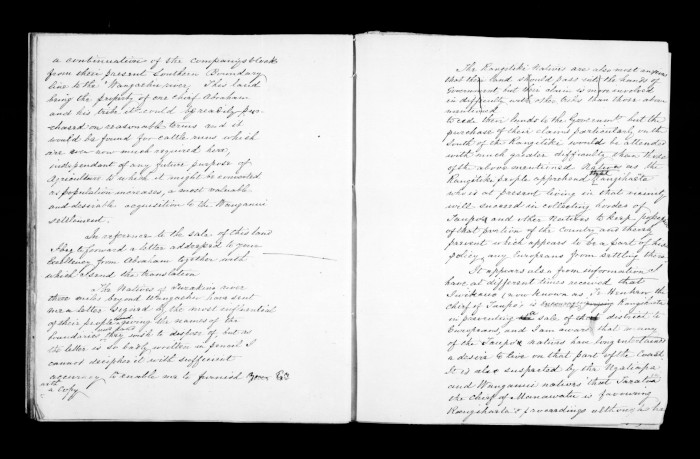 a continuation of the companys block
from their present Southern Boundary
line to the Wangaehu river. This land
being the property of one chief Abraham
and his tribe it could be readily pur-
chased on reasonable terms and it
would be found for cattle runs which
are even now much required here,
independent of any future purpose of
Agriculture to which it might be converted
as population increases, a most valuable
and desirable acquisition to the Wanganui
settlement.
In reference to the sale of this land
I beg to forward a letter addressed to your
Excellency from Abraham together with
which I send the translation
The Natives of Turakina river
three miles beyond Wangaehu have sent
me a letter signed by the most influential
of their people giving the names of the
boundaries they wish to dispose of, but as
the letter is so badly written in pencil I
cannot decipher it with sufficient
accuracy to enable me to furnish your
with
a copy
The Rangitiki Natives are also most anxious
that their land should pass into the hands of
Government but their claim is more involved
in difficulty with other tribes than those above
mentioned
to cede their lands to the Government but the
purchase of their claims particularly on the
South of the Rangitiki would be attended
with much greater difficulty than those
of the above mentioned Natives as the
Rangitiki people apprehend that Rangihaeta
who is at present living in that vicinity
will succeed in collecting hordes of
Taupo and other Natives to keep
of that portion of the Country and thereby
prevent which appears to be a part of his
policy, any Europeans from settling there.
It appears also from information I
have at different times received that
Iwikaio now known as Te Heuheu the
chief of Taupo is encouraging Rangihaeta
in preventing sale of that district to
Europeans, and I am aware that many
of the Taupo natives have long entertained
a desire to live on that part of the Coast.
It is also suspected by the Ngatiapa
and Wanganui natives that
the chief of Manawatu is favouring
Rangihaeta's proceedings although he